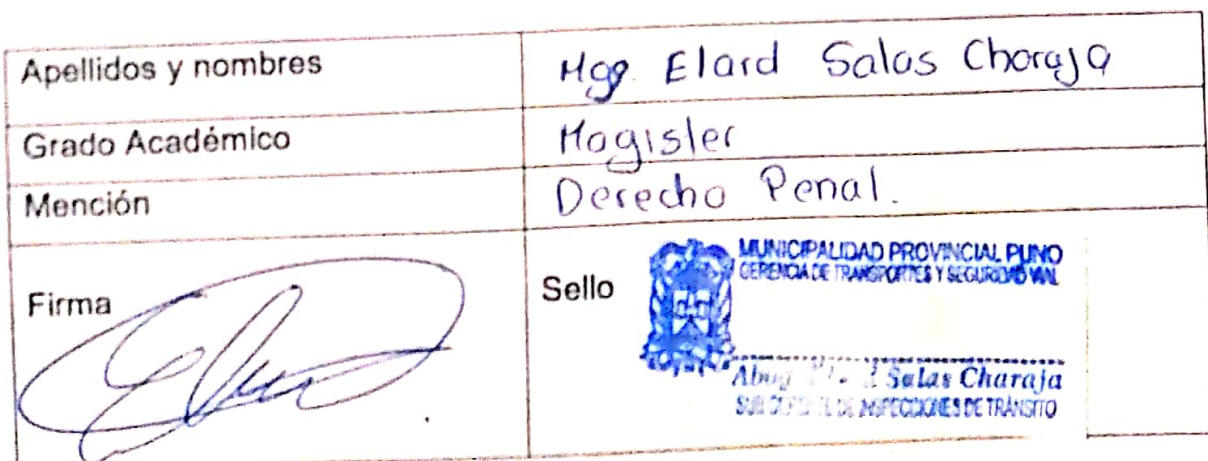 Apellidos y nombres Mgp. Elard Salas Charaja
Grado Académico Magister
Mención Derecho Penal.
Firma Sello
MUNICIPALIDAD PROVINCIAL PUNO
GERENCIA DE TRANSPORTES Y SEGURIDAD VIAL
Abog. Salas Charaja
SUB DE INSPECCIONES DE TRÁNSITO